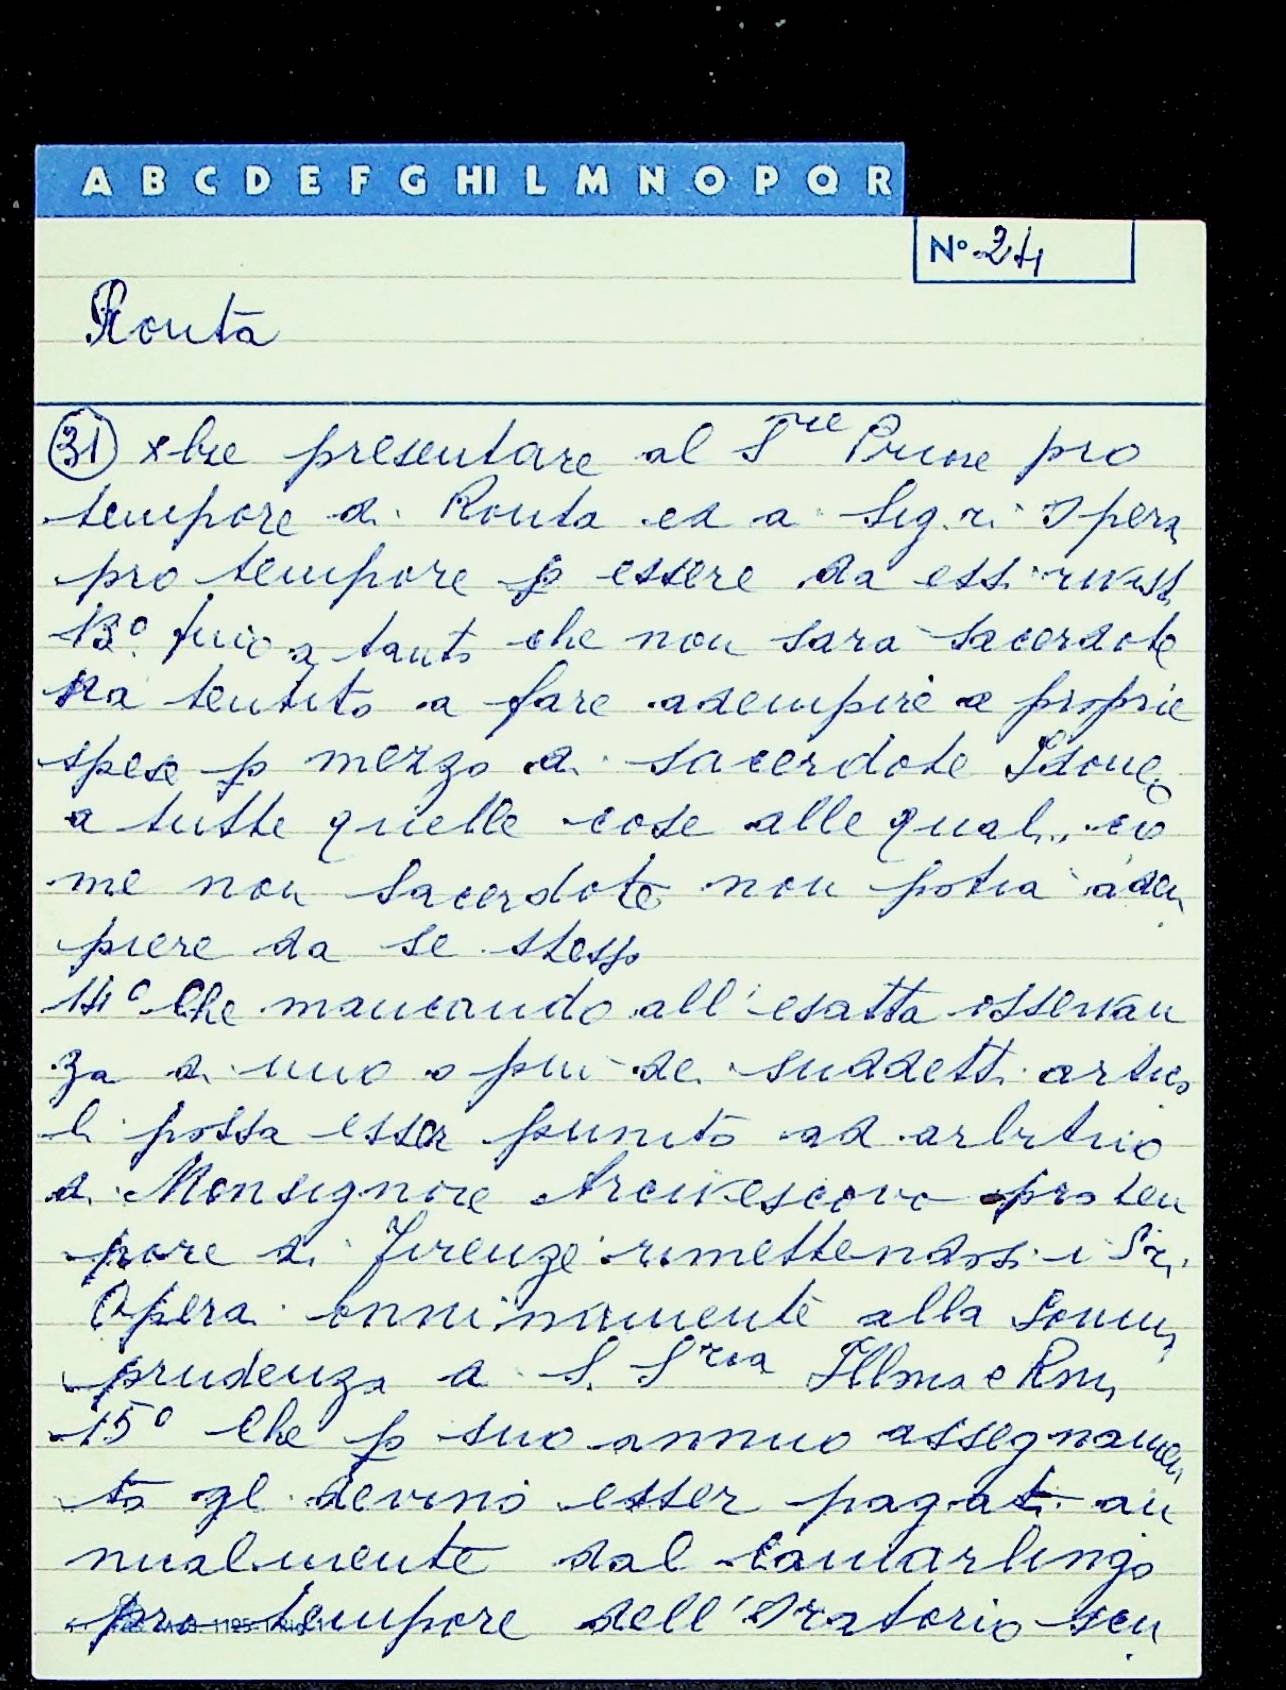 A B C D E F G HI L M N O P Q R
N° 24
Routa
31 xbre presentare al S.re Priore pro
tempore di Routa ed a Sig.ri Opera
pro tempore p essere da essi rivisti
13° fino a tanto che non sarà sacerdote
sia tenuto a fare adempire a proprie
spese p mezzo di sacerdote Idoneo
a tutte quelle cose alle quali co
me non Sacerdote non potrà adem
piere da se stesso
14° Che mancando all'esatta osservan
za di uno o piu dei suddetti artico
li possa esser punito ad arbitrio
di Monsignore Arcivescovo pro tem
pore di Firenze rimettendosi i Sri.
Opera onninamente alla somm
prudenza di S. S.ria Illma e Rm
15° Che p suo annuo assegnamen
to gli devino esser pagati an
nualmente dal Camarlingo
pro tempore dell'Oratorio scu